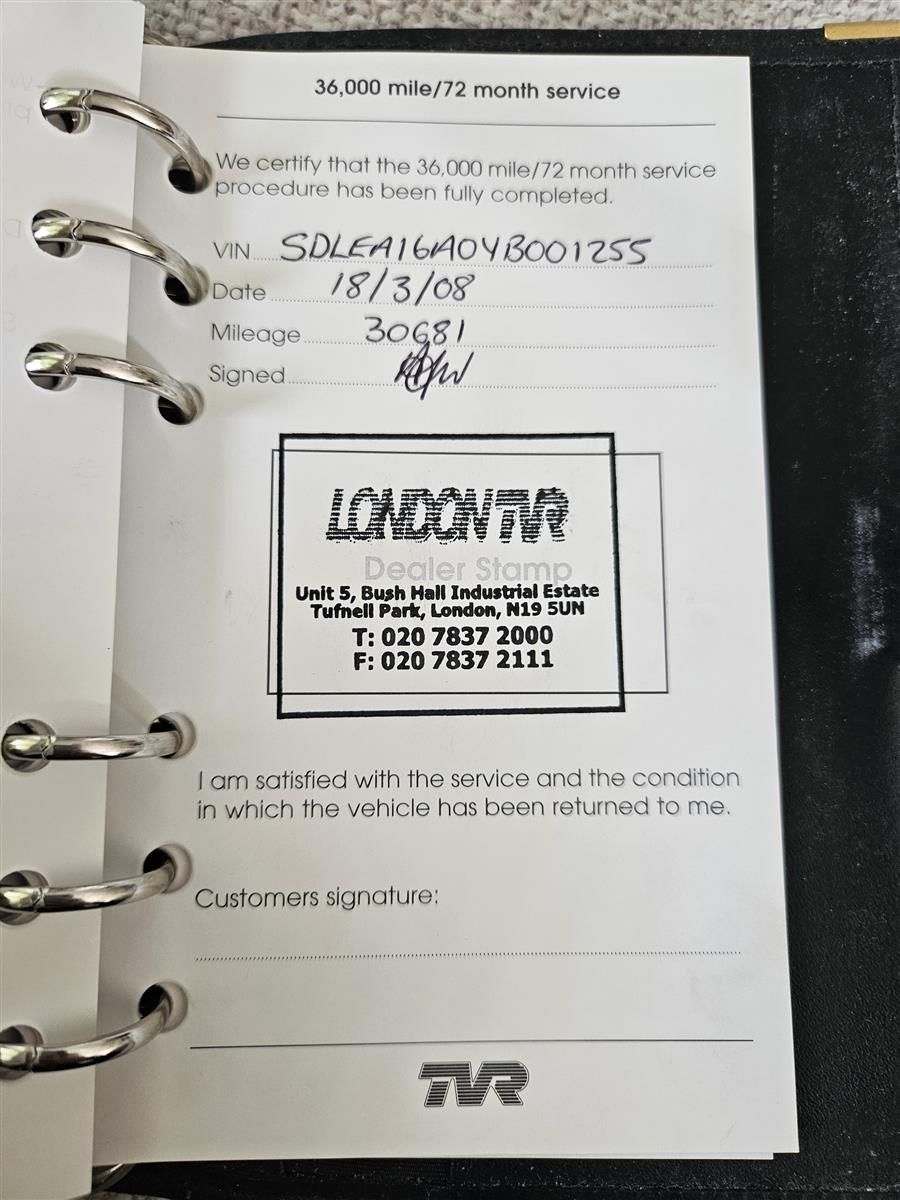 36,000 mile/72 month service
We certify that the 36,000 mile/72 month service
procedure has been fully completed.
VIN SDLEA16A04B001255
Date 18/3/08
Mileage 30681
Signed
LONDON TVR
Dealer Stamp
Unit 5, Bush Hall Industrial Estate
Tufnell Park, London, N19 5UN
T: 020 7837 2000
F: 020 7837 2111
I am satisfied with the service and the condition
in which the vehicle has been returned to me.
Customers signature:
TVR